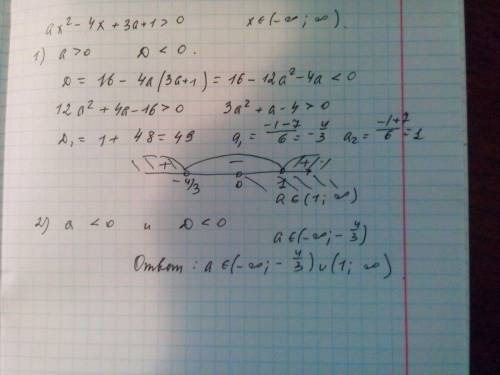 ax² - 4x + 3a + 1 > 0    x ∈ (-∞; ∞).
1) a > 0    D < 0.
D = 16 - 4a(3a+1) = 16 - 12a² - 4a < 0
12a² + 4a - 16 > 0    3a² + a - 4 > 0
D₁ = 1 + 48 = 49    a₁ = (-1-7)/6 = -4/3    a₂ = (-1+7)/6 = 1
+ - +
-4/3 0 1
a ∈ (1; ∞)
2) a < 0 и D < 0    a ∈ (-∞; -4/3)
Ответ: a ∈ (-∞; -4/3) ∪ (1; ∞)